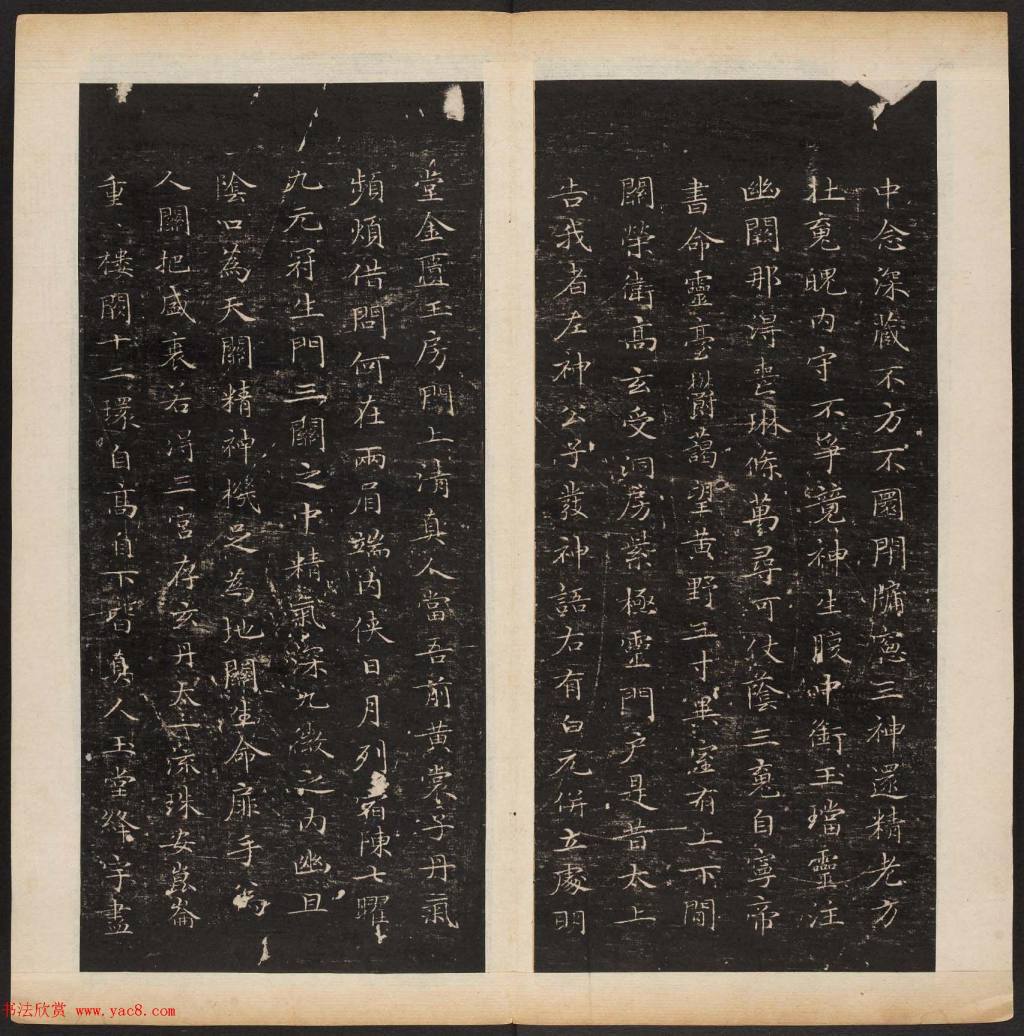 中念深藏不方不圓閉牖窓三神還精老方
壮䰟魄内守不爭競神生腹中銜玉璫靈注
幽闕那得喪琳條萬尋可仗蔭三䰟自寧帝
書命靈臺欝藹望黄野三寸異室有上下間
關榮衛高玄受洞房紫極靈門户是昔太上
告我者左神公子發神語右有白元併立處明
堂金匱玉房門上清真人當吾前黄裳子丹氣
頻煩借問何在兩眉端内侠日月列宿陳七曜
九元冠生門三關之中精氣深九微之内幽且
陰口為天關精神機足為地關生命扉手為
人關把盛衰若得三宮存玄丹太一流珠安崑崙
重〻樓閣十二環自高自下皆真人玉堂絳宇盡
书法欣赏 www.yac8.com